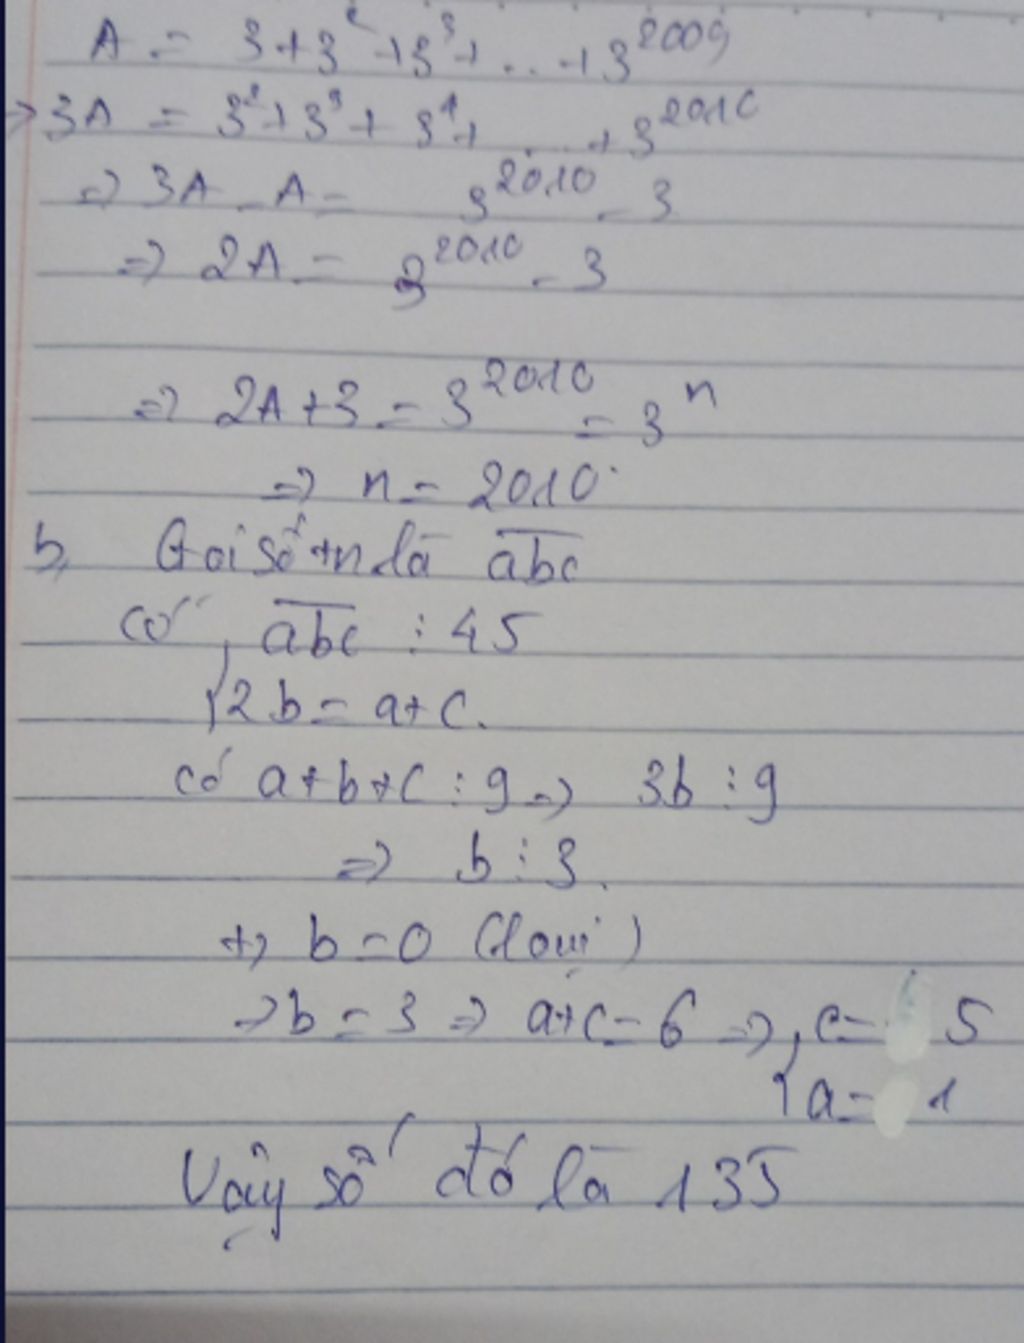 A = 3 + 3² + 3³ + ... + 3²⁰⁰⁹
→ 3A = 3² + 3³ + 3⁴ + ... + 3²⁰¹⁰
=> 3A - A = 3²⁰¹⁰ - 3
=> 2A = 3²⁰¹⁰ - 3
=> 2A + 3 = 3²⁰¹⁰ = 3ⁿ
=> n = 2010
b, Gọi số tn là abc
có { abc ⋮ 45
2b = a + c.
có a + b + c ⋮ 9 => 3b ⋮ 9
=> b ⋮ 3.
+> b = 0 (loại)
-> b = 3 => a + c = 6 => { c = 5
a = 1
Vậy số đó là 135